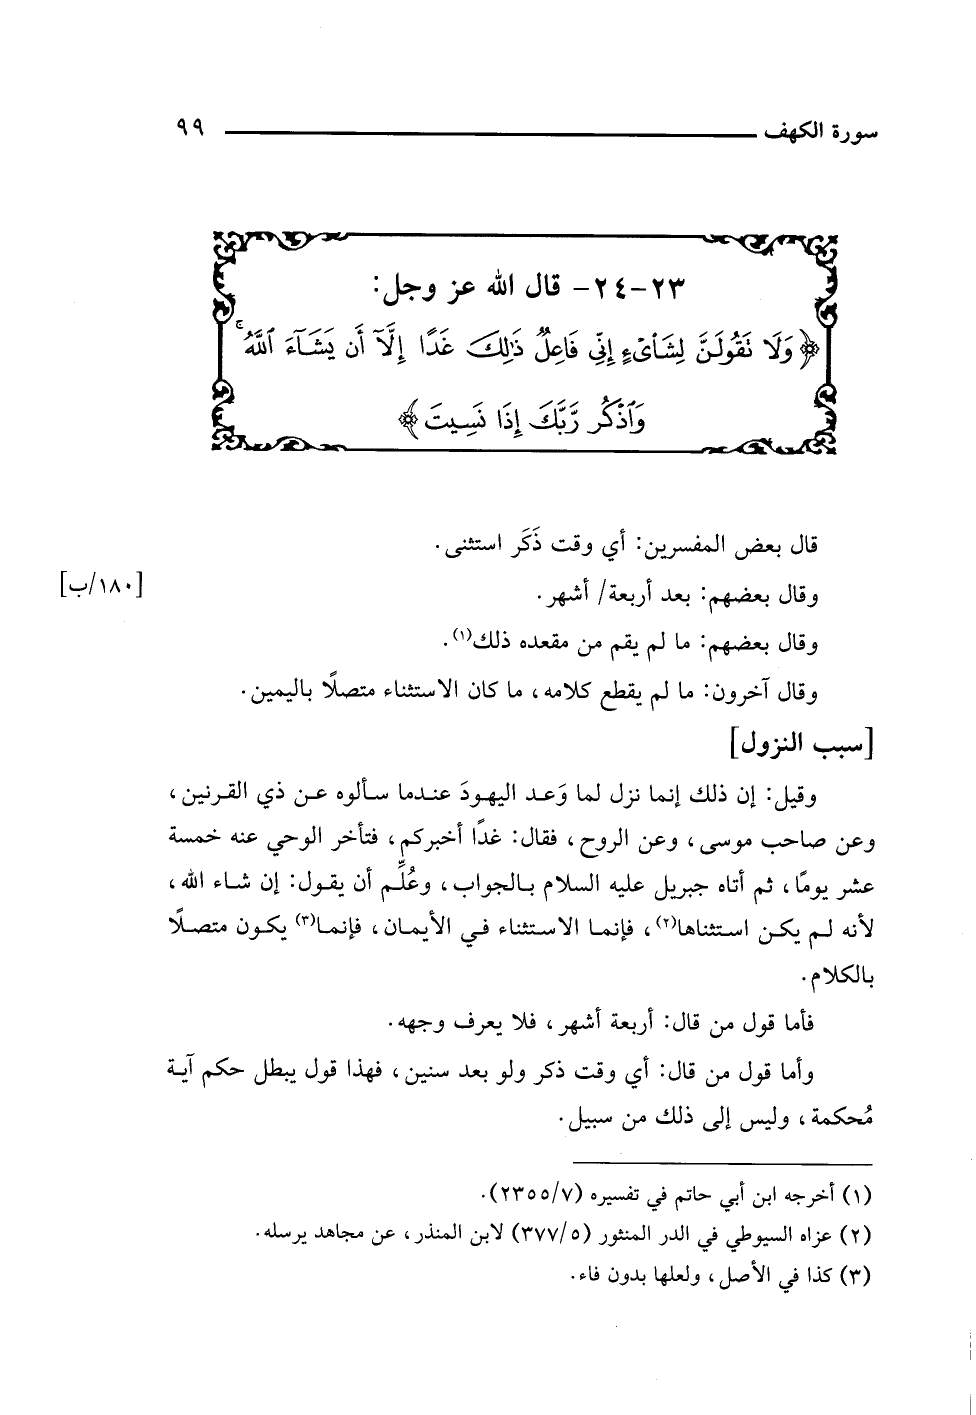 سورة الكهف ٩٩
٢٣-٢٤- قال الله عز وجل:
﴿وَلَا نَقُولَنَّ لِشَاْىْءٍ إِنِّى فَاعِلٌ ذَٰلِكَ غَدًا إِلَّآ أَن يَشَآءَ ٱللَّهُ ۚ
وَٱذْكُر رَّبَّكَ إِذَا نَسِيتَ﴾
قال بعض المفسرين: أي وقت ذَكَر استثنى.
وقال بعضهم: بعد أربعة/ أشهر. [١٨٠/ب]
وقال بعضهم: ما لم يقم من مقعده ذلك(١).
وقال آخرون: ما لم يقطع كلامه، ما كان الاستثناء متصلًا باليمين.
[سبب النزول]
وقيل: إن ذلك إنما نزل لما وَعد اليهودَ عندما سألوه عن ذي القرنين،
وعن صاحب موسى، وعن الروح، فقال: غدًا أخبركم، فتأخر الوحي عنه خمسة
عشر يومًا، ثم أتاه جبريل عليه السلام بالجواب، وعُلِّم أن يقول: إن شاء الله،
لأنه لم يكن استثناها(٢)، فإنما الاستثناء في الأيمان، فإنما(٣) يكون متصلًا
بالكلام.
فأما قول من قال: أربعة أشهر، فلا يعرف وجهه.
وأما قول من قال: أي وقت ذكر ولو بعد سنين، فهذا قول يبطل حكم آية
مُحكمة، وليس إلى ذلك من سبيل.
(١) أخرجه ابن أبي حاتم في تفسيره (٢٣٥٥/٧).
(٢) عزاه السيوطي في الدر المنثور (٣٧٧/٥) لابن المنذر، عن مجاهد يرسله.
(٣) كذا في الأصل، ولعلها بدون فاء.